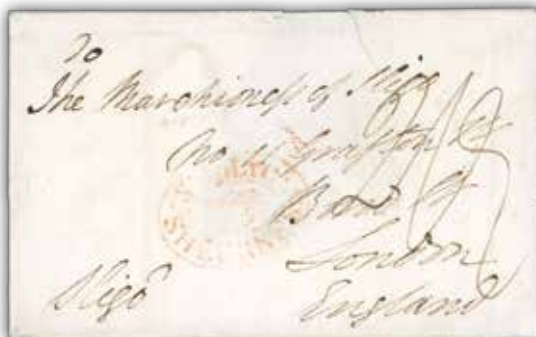 To
The Marchioness of Sligo
No 11 Grafton St
Bond St
London
England
Sligo